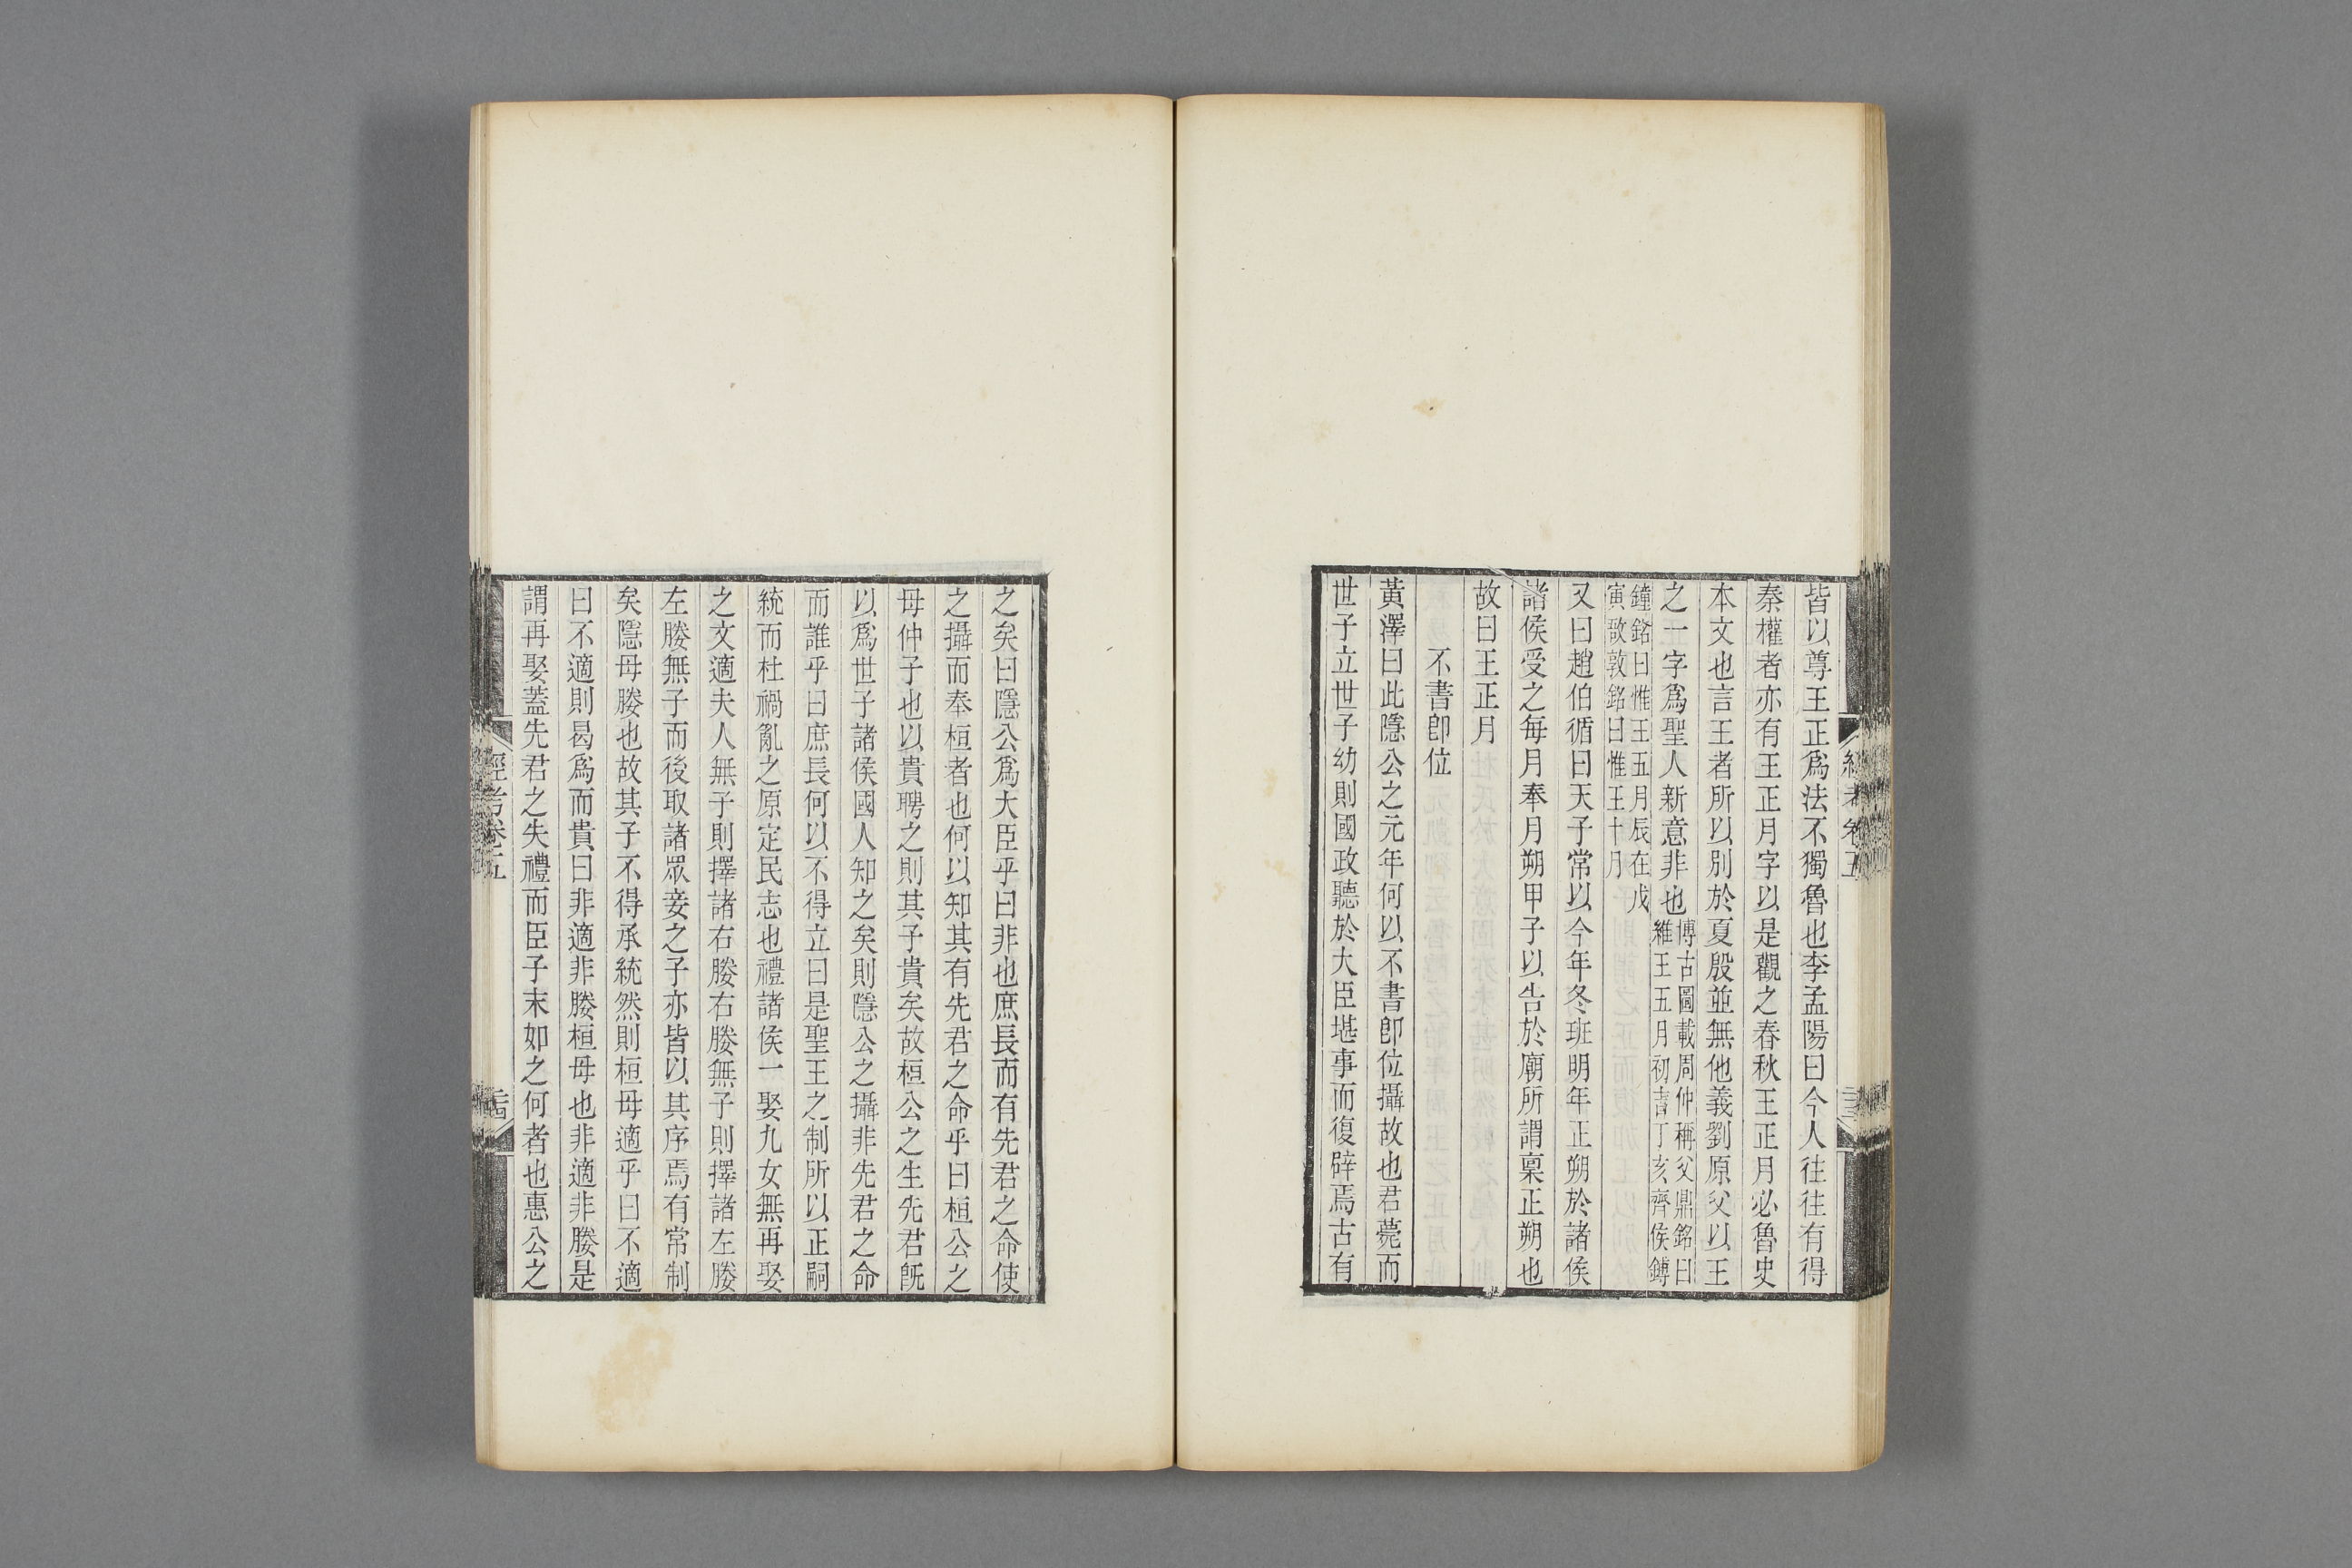 皆以尊王正爲法不獨魯也李孟陽曰今人往往有得
秦權者亦有王正月字以是觀之春秋王正月必魯史
本文也言王者所以別於夏殷並無他義劉原父以王
之一字爲聖人新意非也博古圖載周仲稱父鼎銘曰
維王五月初吉丁亥齊侯鎛
鐘銘曰惟王五月辰在戊
寅敔敦銘曰惟王十月
又曰趙伯循曰天子常以今年冬班明年正朔於諸侯
諸侯受之每月奉月朔甲子以告於廟所謂稟正朔也
故曰王正月
不書卽位
黃澤曰此隱公之元年何以不書卽位攝故也君薨而
世子立世子幼則國政聽於大臣堪事而復辟焉古有
經考卷五
之矣曰隱公爲大臣乎曰非也庶長而有先君之命使
之攝而奉桓者也何以知其有先君之命乎曰桓公之
母仲子也以貴聘之則其子貴矣故桓公之生先君旣
以爲世子諸侯國人知之矣則隱公之攝非先君之命
而誰乎曰庶長何以不得立曰是聖王之制所以正嗣
統而杜禍亂之原定民志也禮諸侯一娶九女無再娶
之文適夫人無子則擇諸右媵右媵無子則擇諸左媵
左媵無子而後取諸眾妾之子亦皆以其序焉有常制
矣隱母媵也故其子不得承統然則桓母適乎曰不適
曰不適則曷爲而貴曰非適非媵桓母也非適非媵是
謂再娶蓋先君之失禮而臣子末如之何者也惠公之
經考卷五